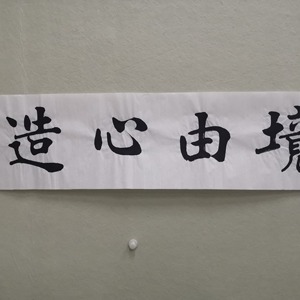 境由心造